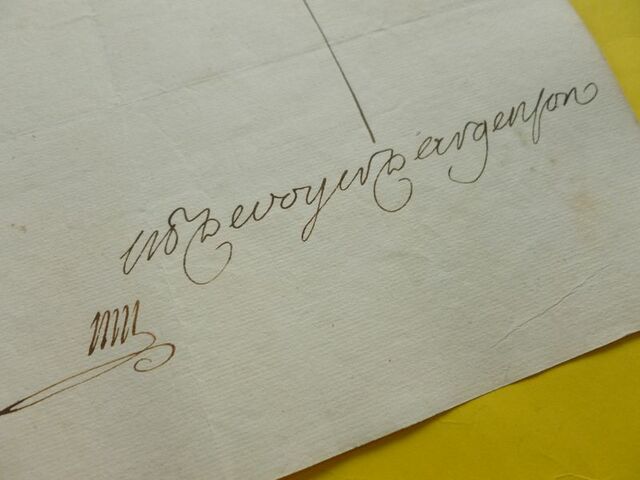 Devoyer Deargenson